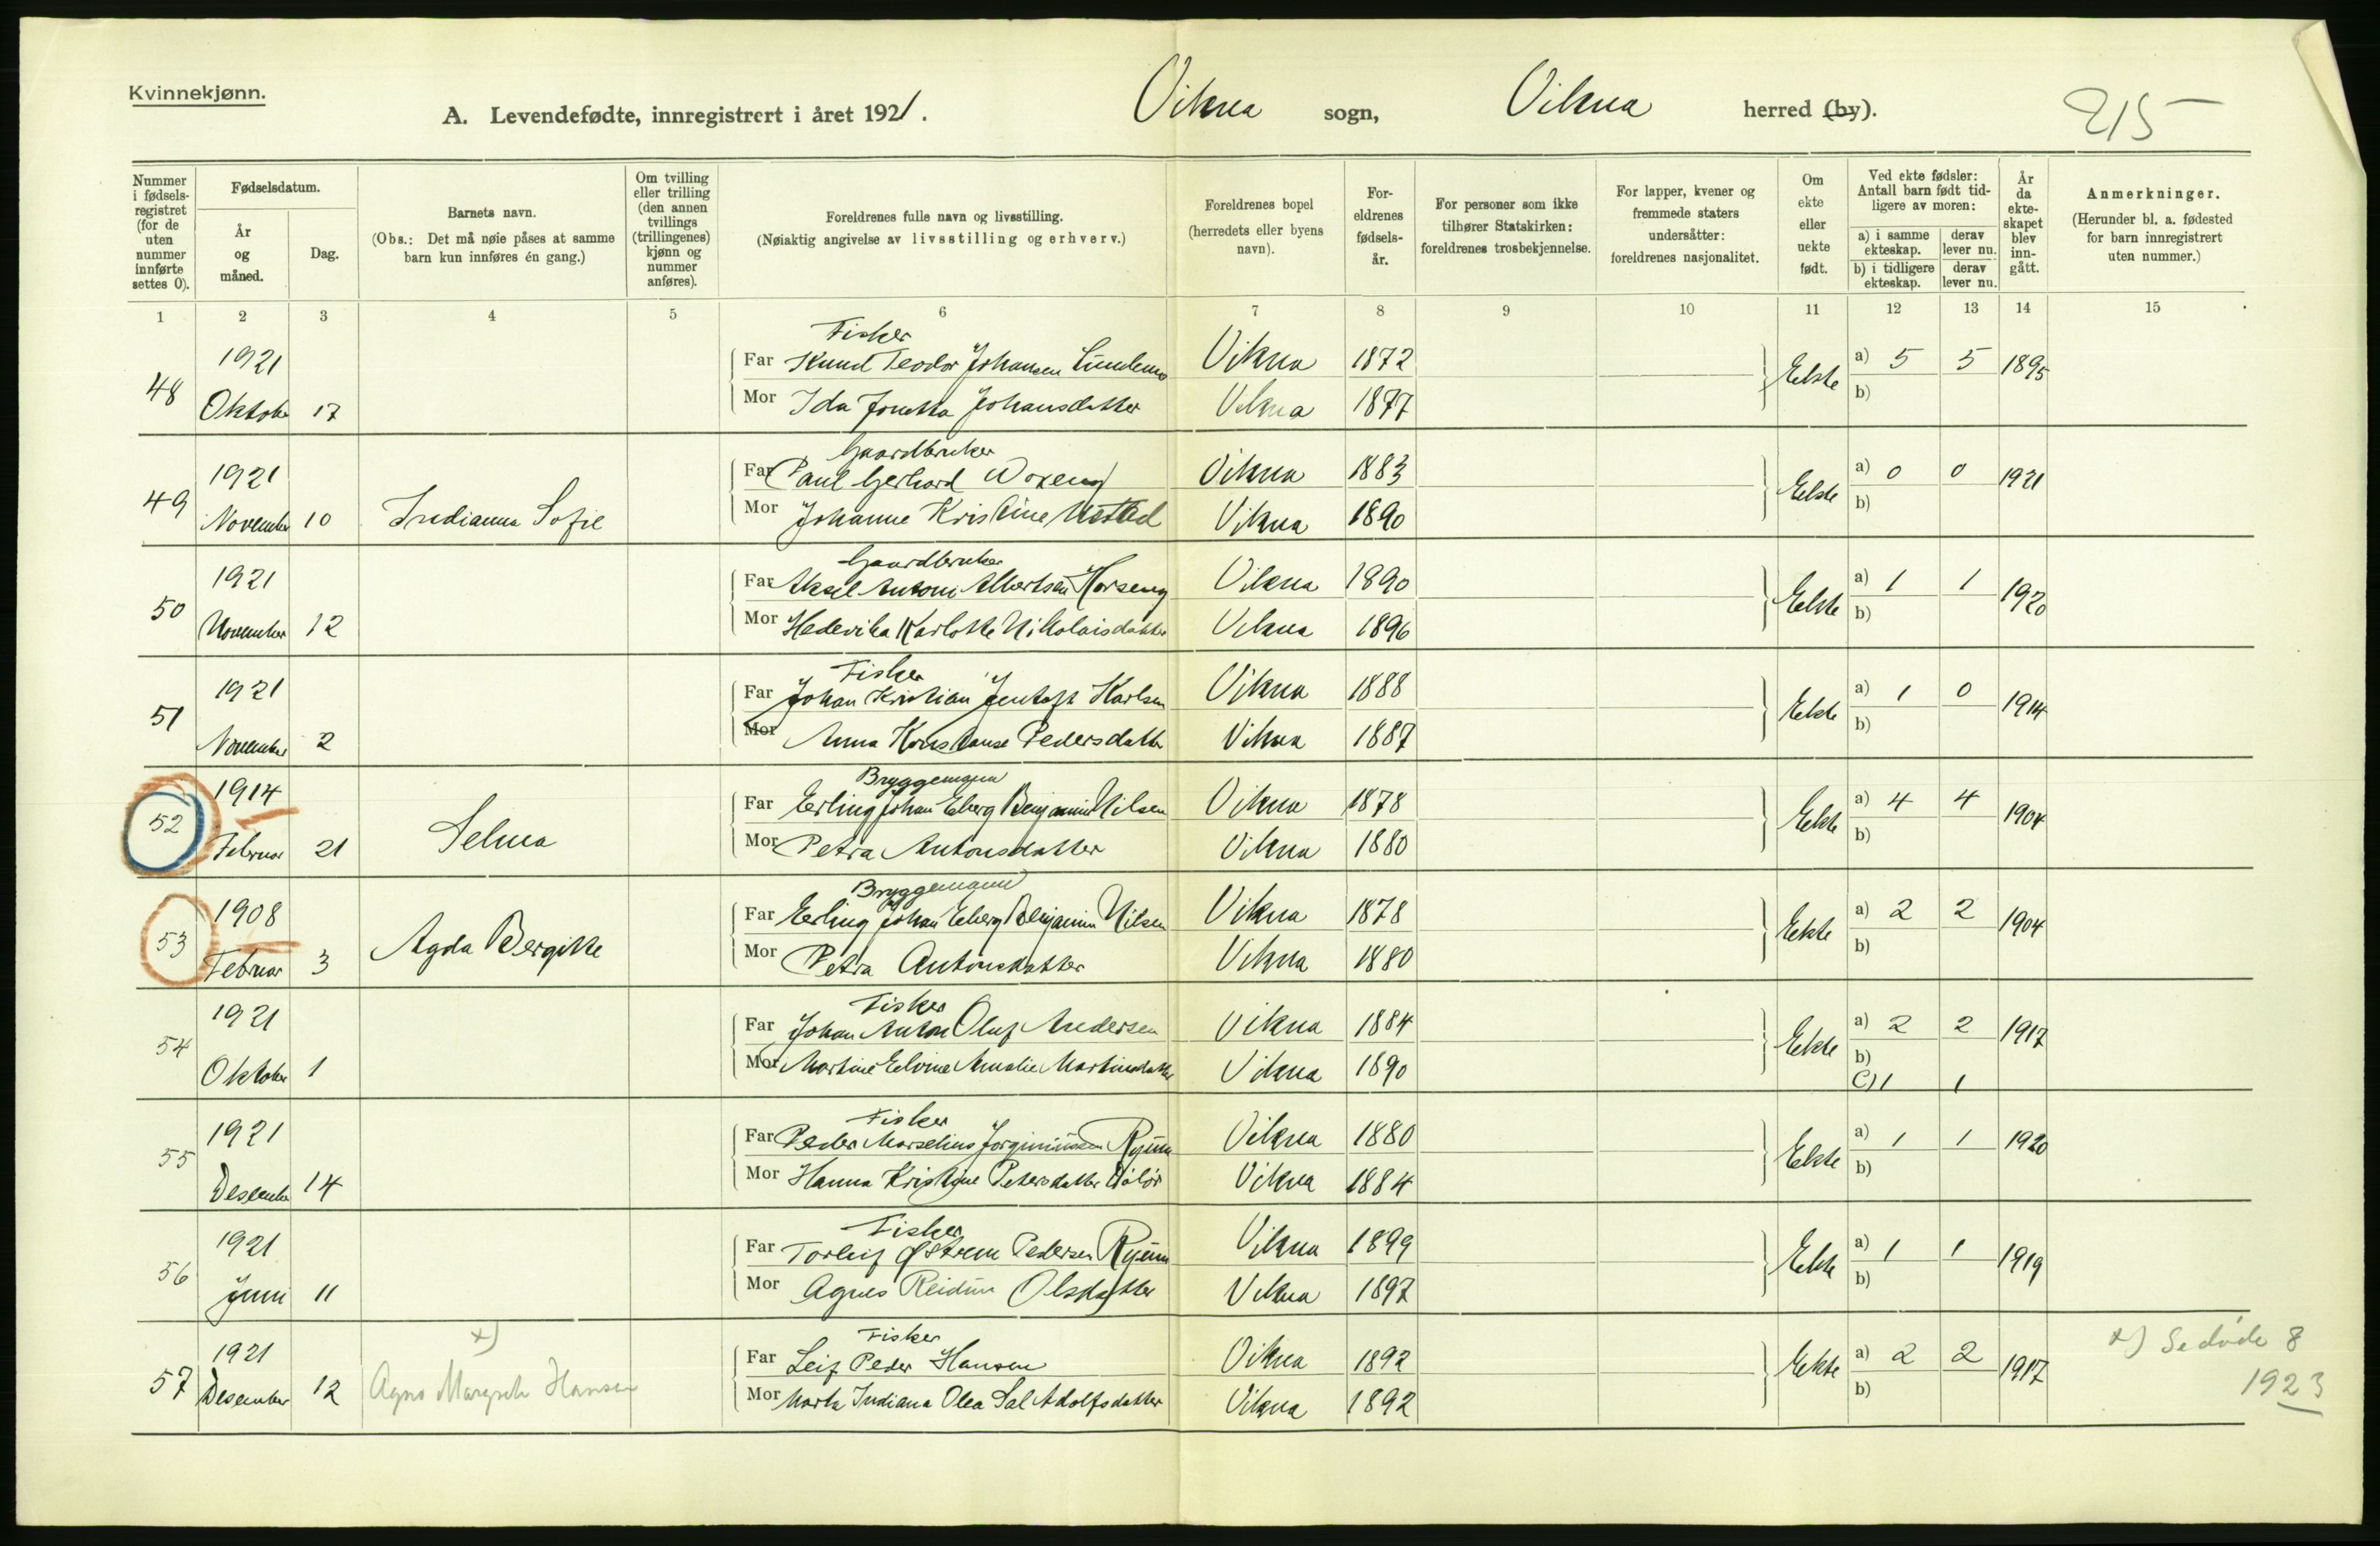 Kvinnekjønn.
A. Levendefødte, innregistrert i året 1921.
Vikna sogn, Vikna herred (by).
215
Nummer i fødsels-registret (for de uten nummer innførte settes 0).
Fødselsdatum.
År og måned.
Dag.
Barnets navn.
(Obs.: Det må nøie påses at samme barn kun innføres én gang.)
Om tvilling eller trilling (den annen tvillings (trillingenes) kjønn og nummer anføres).
Foreldrenes fulle navn og livsstilling.
(Nøiaktig angivelse av livsstilling og erhverv.)
Foreldrenes bopel (herredets eller byens navn).
For-eldrenes fødsels-år.
For personer som ikke tilhører Statskirken: foreldrenes trosbekjennelse.
For lapper, kvener og fremmede staters undersåtter: foreldrenes nasjonalitet.
Om ekte eller uekte født.
Ved ekte fødsler: Antall barn født tid-ligere av moren:
a) i samme ekteskap. derav lever nu.
b) i tidligere ekteskap. derav lever nu.
År da ekte-skapet blev inn-gått.
Anmerkninger.
(Herunder bl. a. fødested for barn innregistrert uten nummer.)
1 2 3 4 5 6 7 8 9 10 11 12 13 14 15
Fisker
48 1921 Far Knud Teodor Johansen Vikna 1872 Ekte a) 5 5 1895
Oktober 17 Mor Ida Jonetta Johansdatter Vikna 1877 b)
Gaardbruker
49 1921 Far Paul Gerhard Woxeng Vikna 1883 Ekte a) 0 0 1921
November 10 Indianna Sofie Mor Johanne Kristine Vikna 1890 b)
Gaardbruker
50 1921 Far Aksel Antoni Albertsen Horseng Vikna 1890 Ekte a) 1 1 1920
November 12 Mor Hedevika Karlotte Nikolaisdatter Vikna 1896 b)
Fisker
51 1921 Far Johan Kristian Jentoft Karlsen Vikna 1888 Ekte a) 1 0 1914
November 2 Mor Anna Konstanse Pedersdatter Vikna 1887 b)
Bryggemann
52 1914 Far Erling Johan Eberg Benjamin Nilsen Vikna 1878 Ekte a) 4 4 1904
Februar 21 Selma Mor Petra Antonsdatter Vikna 1880 b)
Bryggemann
53 1908 Far Erling Johan Eberg Benjamin Nilsen Vikna 1878 Ekte a) 2 2 1904
Februar 3 Agda Bergitte Mor Petra Antonsdatter Vikna 1880 b)
Fisker
54 1921 Far Johan Anton Oluf Andersen Vikna 1884 Ekte a) 2 2 1917
Oktober 1 Mor Martine Elvine Amalie Martinsdatter Vikna 1890 b)
C) 1 1
Fisker
55 1921 Far Peder Marselius Ryum Vikna 1880 Ekte a) 1 1 1920
Desember 14 Mor Hanna Kristine Petersdatter Vikna 1884 b)
Fisker
56 1921 Far Torleif Østrem Pedersen Ryum Vikna 1899 Ekte a) 1 1 1919
Juni 11 Mor Agnes Reidun Olsdatter Vikna 1897 b)
x) Fisker x) Se døde 8
57 1921 Far Leif Peder Hansen Vikna 1892 Ekte a) 2 2 1917 1923
Desember 12 Agnes Margrete Hansen Mor Marta Indiana Olea Sal Adolfsdatter Vikna 1892 b)